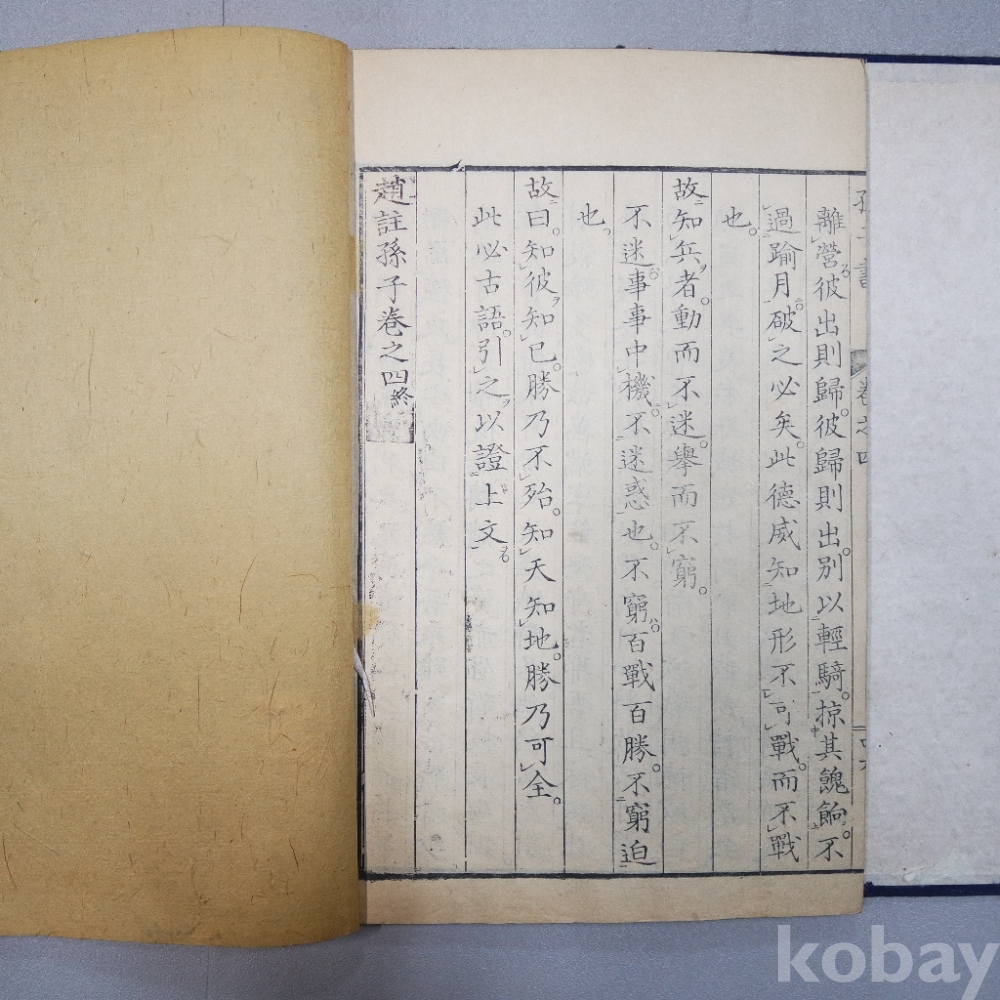 離營彼出則歸。彼歸則出。別以輕騎。掠其餽餉。不
過踰月。破之必矣。此德威知地形不可戰。而不戰
也。
故知兵者。動而不迷。舉而不窮。
不迷事事中機。不迷惑也。不窮。百戰百勝。不窮迫
也。
故曰。知彼知已。勝乃不殆。知天知地。勝乃可全。
此必古語。引之以證上文
趙註孫子卷之四終
卷之四
kobay